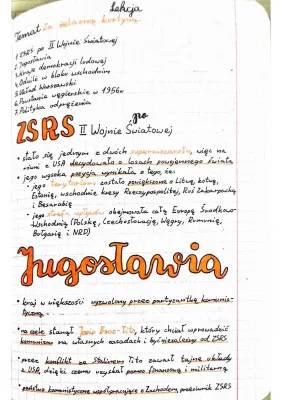 Lekcja
Temat: Za żelazną kurtyną
1. ZSRS po II Wojnie Światowej
2. Jugosławia
3. Kraje demokracji ludowej
4. Odwilż w bloku wschodnim
5. Układ Warszawski
6. Powstanie węgierskie w 1956r
7. Polityka odprężenia
ZSRS po II Wojnie Światowej
• stało się jednym z dwóch supermocarstw, więc na
równi z USA decydowało o losach powojennego świata
• jego wysoka pozycja wynikała z tego, że:
• jego terytorium zostało powiększone o Litwę, Łotwę,
Estonię, wschodnie kresy Rzeczypospolitej, Ruś Zakarpacką
i Besarabię
• jego strefa wpływów obejmowała całą Europę Środkowo-
Wschodnią (Polskę, Czechosłowację, Węgry, Rumunię,
Bułgarię i NRD)
Jugosławia
• kraj w większości wyzwolony przez partyzantkę komunis-
tyczną
• na czele stanął Josip Broz-Tito, który chciał wprowadzić
komunizm na własnych zasadach i być niezależny od ZSRS
• przez konflikt ze Stalinem Tito zawarł tajne układy
z USA, dzięki czemu uzyskał pomoc finansową i militarną
• państwo komunistyczne współpracujące z Zachodem, przeciwnik ZSRS